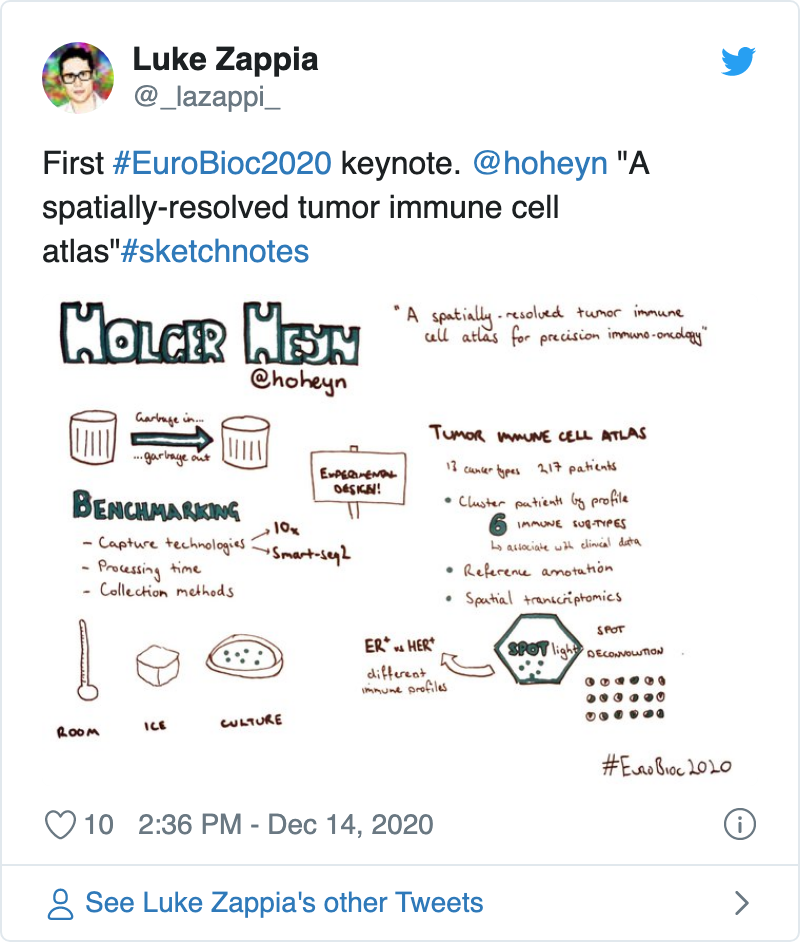 Luke Zappia
@_lazappi_
First #EuroBioc2020 keynote. @hoheyn "A
spatially-resolved tumor immune cell
atlas"#sketchnotes
HOLGER HEYN
@hoheyn
"A spatially-resolved tumor immune
cell atlas for precision immuno-oncology"
Garbage in...
...garbage out
EXPERIMENTAL
DESIGN!
BENCHMARKING
- Capture technologies
10x
Smart-seq2
- Processing time
- Collection methods
ROOM
ICE
CULTURE
TUMOR IMMUNE CELL ATLAS
13 cancer types 217 patients
• Cluster patients by profile
6 IMMUNE SUB-TYPES
↳ associate with clinical data
• Reference annotation
• Spatial transcriptomics
ER+ vs HER+
different
immune profiles
SPOTlight
SPOT
DECONVOLUTION
#EuroBioc2020
10 2:36 PM - Dec 14, 2020
See Luke Zappia's other Tweets